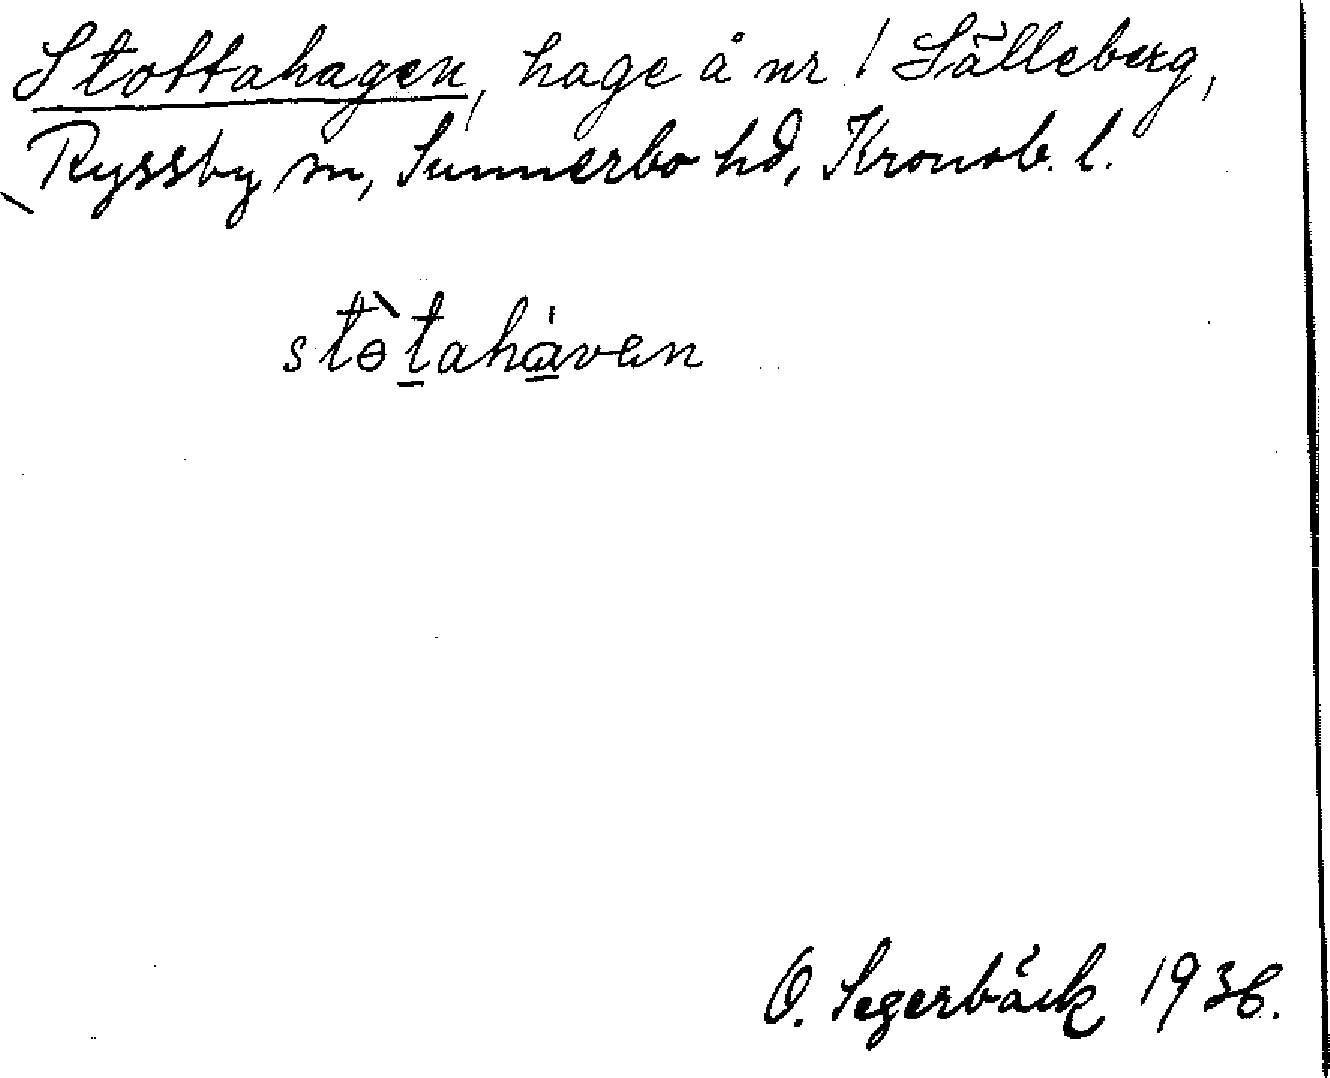 Stottahagen, hage å nr 1 Sälleberg,
Ryssby sn, Sunnerbo hd, Kronob. l.
stɵ̀tahàven
O. Segerbäck 1936.